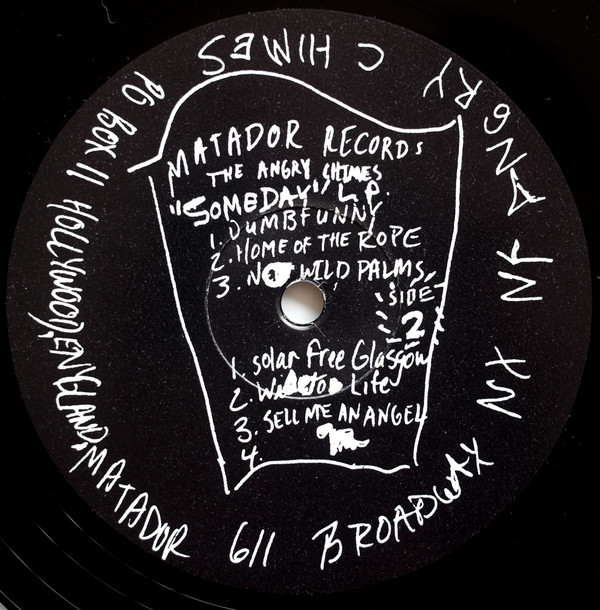 MATADOR RECORDS
THE ANGRY CHIMES
"SOMEDAY" L.P.
1. DUMBFUNNY
2. HOME OF THE ROPE
3. NOT WILD PALMS
SIDE
2
1. solar free Glasgow
2. Life
3. SELL ME AN ANGEL
4.
PO BOX 11 HOLLYWOOD, ENGLAND, MATADOR 611 BROADWAY NY NY ANGRY CHIMES